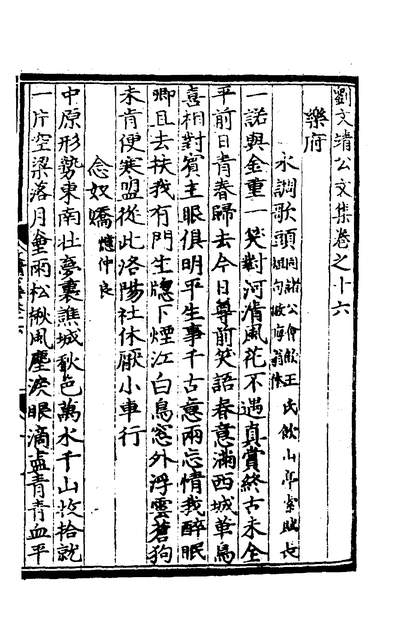 劉文靖公文集卷之十六
樂府
水調歌頭 同諸公會飲王氏飲山亭索賦長短句效晦翁體
一諾與金重一笑對河清風花不遇真賞終古未全
平前日青春歸去今日尊前笑語春意滿西城草鳥
喜相對賓主眼俱明平生事千古意兩忘情我醉眠
卿且去扶我有門生牕下煙江白鳥窓外浮雲蒼狗
未肯便寒盟從此洛陽社休厭小車行
念奴嬌 憶仲良
中原形勢東南壮夢裏譙城秋色萬水千山收拾就
一片空梁落月煙雨松楸風塵淚眼滴盡青青血平